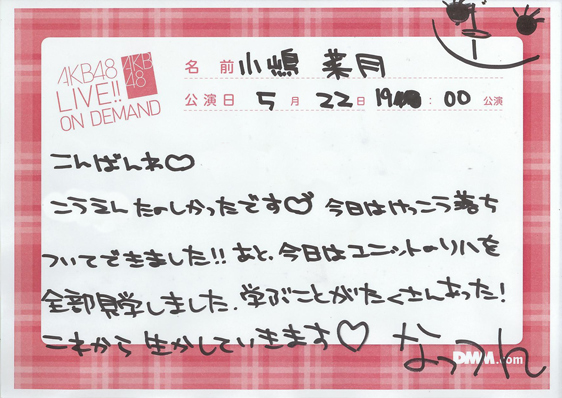 AKB48
LIVE!!
ON DEMAND
AKB
48
名 前 小嶋 菜月
公演日 5月 22日 19:00 公演
こんばんわ♡
こうえんたのしかったです♡ 今日はけっこう落ち
ついてできました!! あと、今日はユニットのリハを
全部見学しました。学ぶことがたくさんあった!
これから生かしていきます♡
なっつん
DMM.com